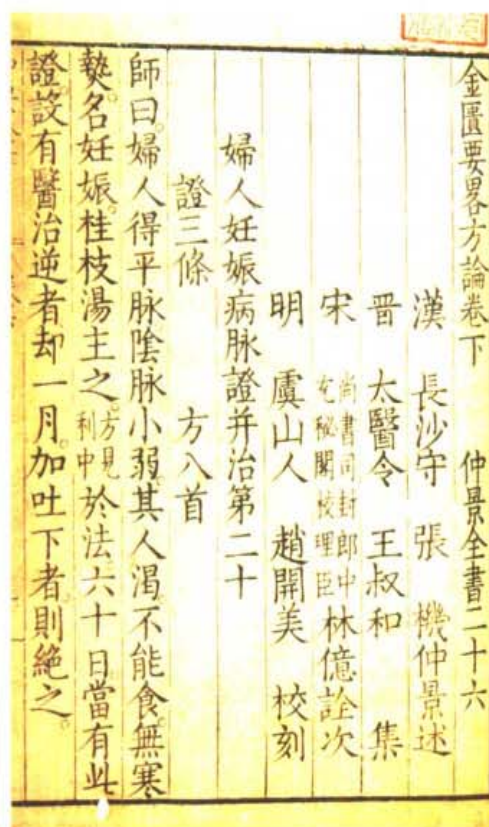 金匱要畧方論卷下 仲景全書二十六
漢 長沙守 張 機仲景述
晉 太醫令 王叔和 集
宋 尚書司封郎中充秘閣校理臣林億詮次
明 虞山人 趙開美 校刻
婦人妊娠病脉證并治第二十
證三條 方八首
師曰。婦人得平脉。陰脉小弱。其人渴。不能食。無寒
熱。名妊娠。桂枝湯主之。方見利中於法六十日。當有此
證。設有醫治逆者。却一月。加吐下者。則絶之。